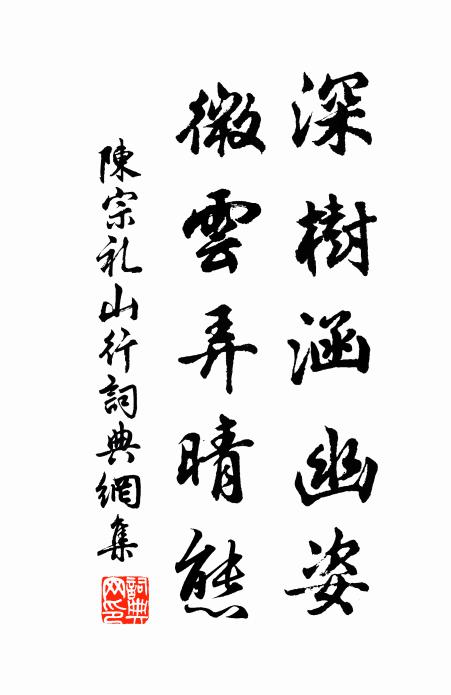 深樹涵幽姿
微雲弄晴態
陳宗礼山行詞典網集
詞典网印